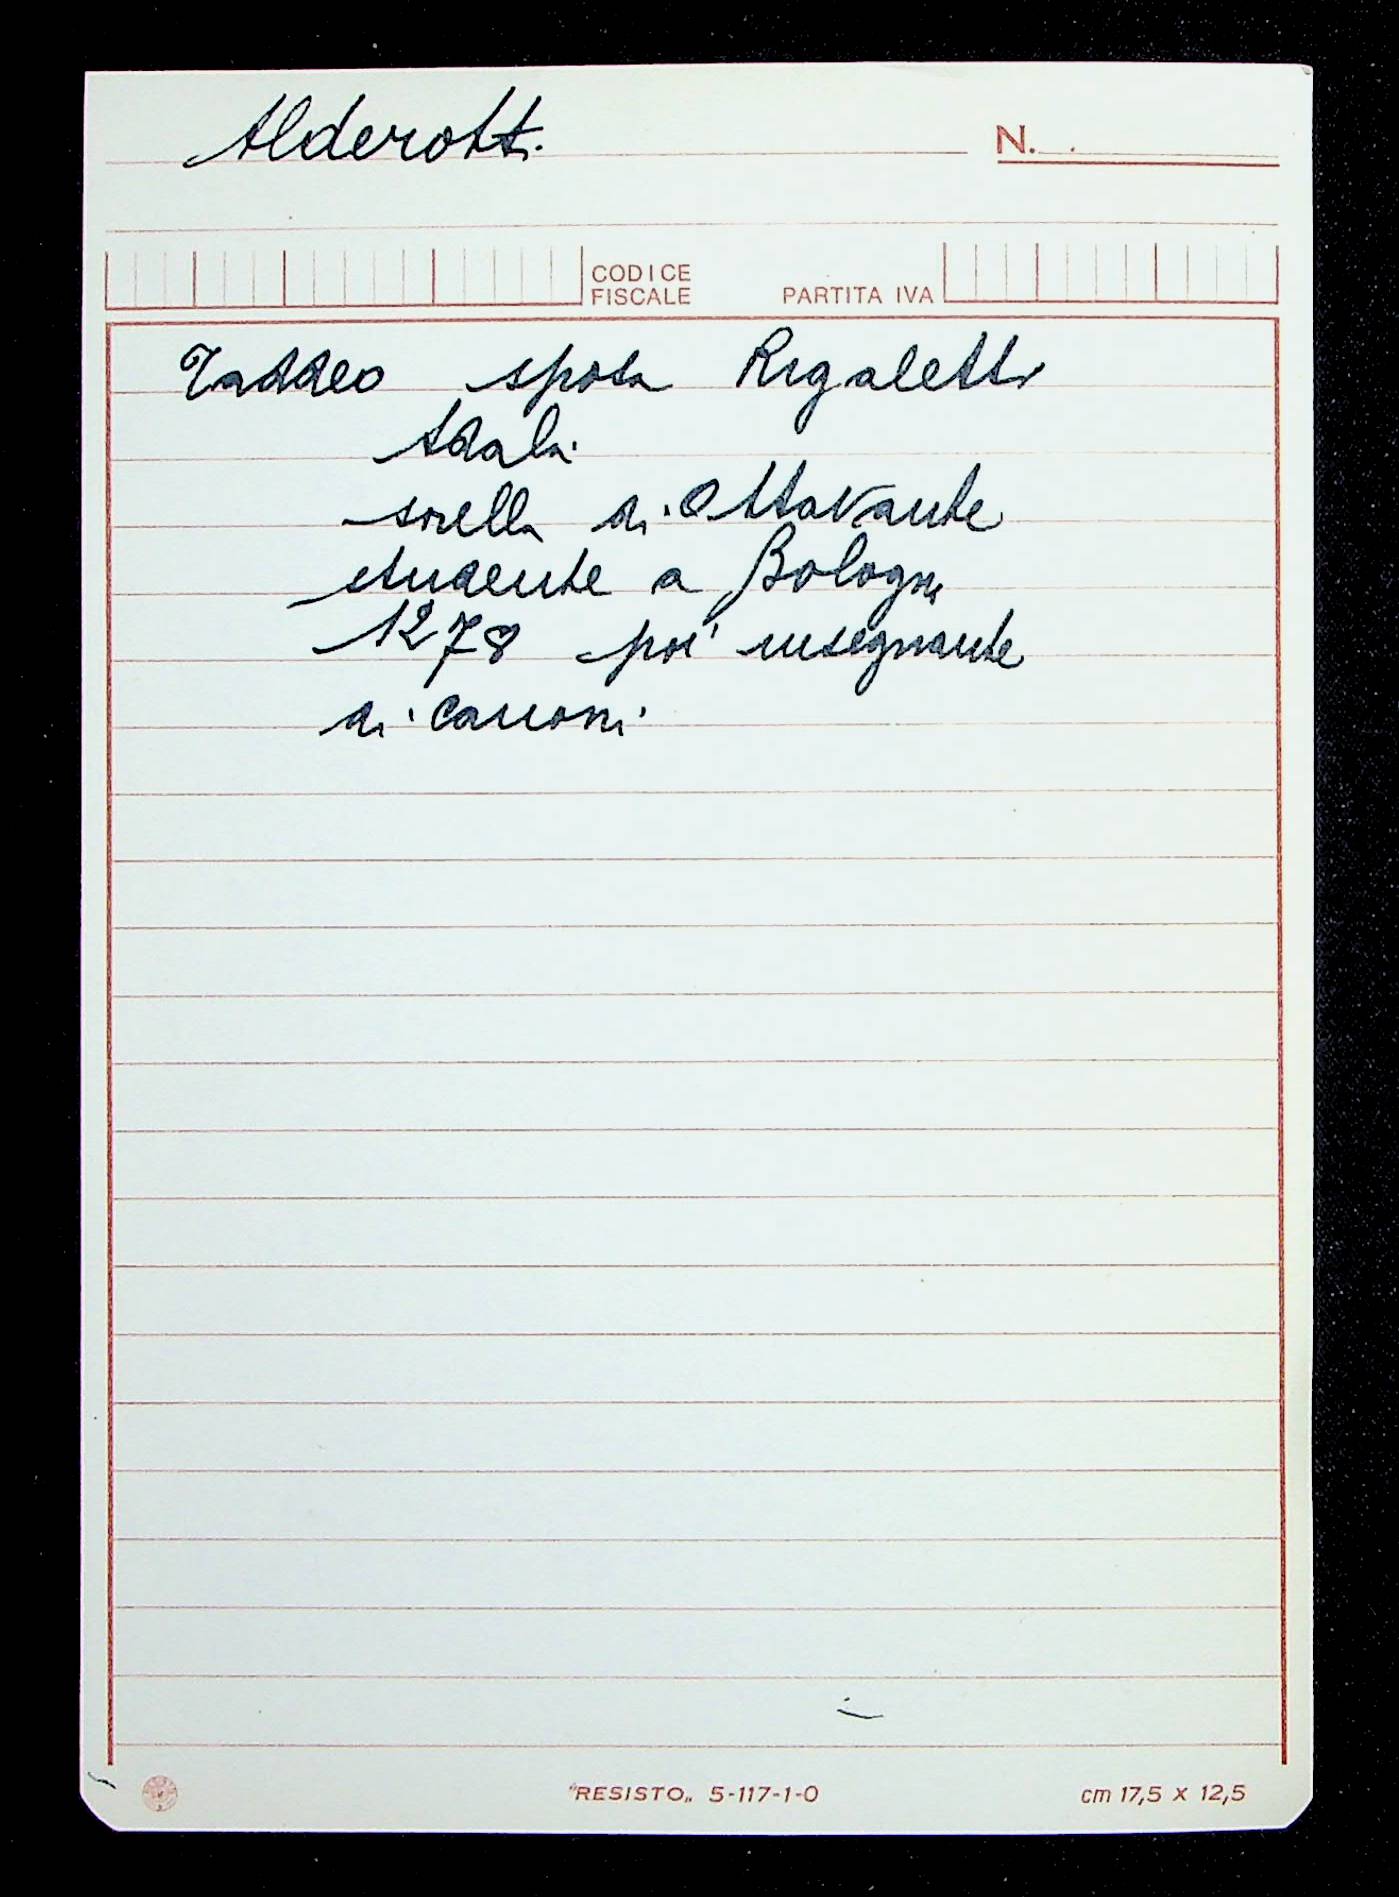 Alderotti
N.
CODICE
FISCALE
PARTITA IVA
Taddeo sposa Rigaletti
Adola
sorella di Ottavante
studente a Bologna
1278 poi insegnante
di canoni
"RESISTO„ 5-117-1-0
cm 17,5 x 12,5